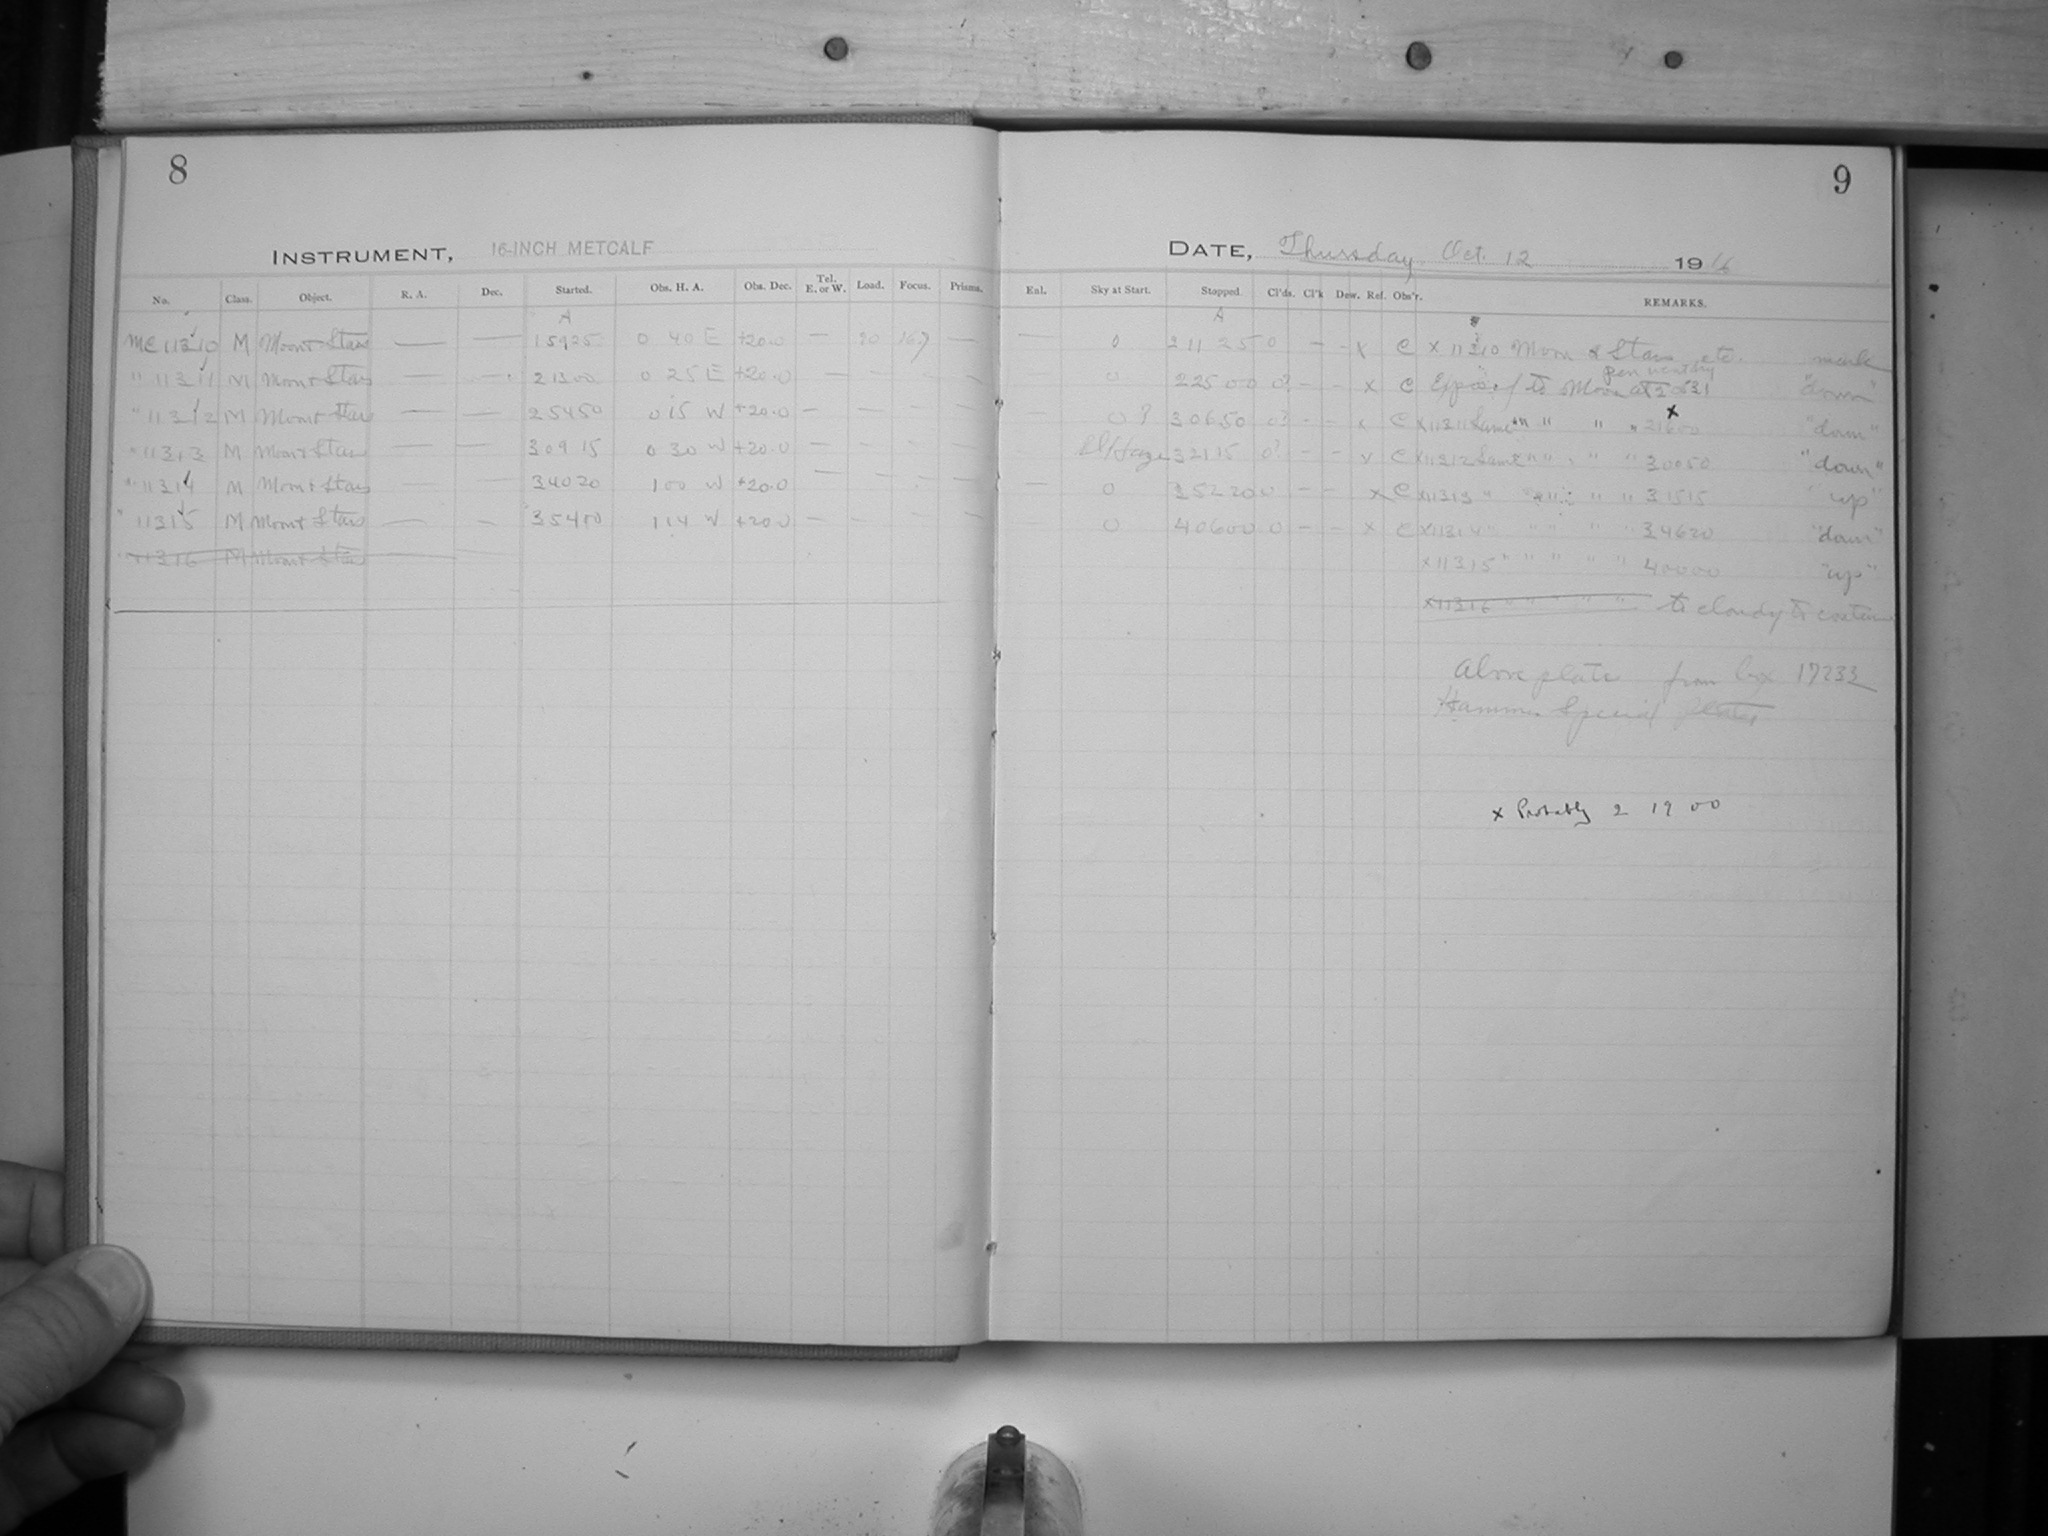 8
INSTRUMENT, 16-INCH METCALF
No. Class. Object. R. A. Dec. Started. Obs. H. A. Obs. Dec. Tel. E. or W. Load. Focus. Prisms.
A
MC 11310 M Moon & Stars — — 1 59 25 0 40 E +20.0 — 16.9 —
" 11311 M Moon & Stars — — 2 13 00 0 25 E +20.0 — — — —
" 11312 M Moon & Stars — — 2 54 50 0 15 W +20.0 — — — —
" 11313 M Moon & Stars — — 3 09 15 0 30 W +20.0 — — — —
" 11314 M Moon & Stars — — 3 40 20 1 00 W +20.0 — — — —
" 11315 M Moon & Stars — — 3 54 1 14 W +20.0 — — — —
11316 M Moon & Stars
9
DATE, Thursday Oct. 12 1916
Eal. Sky at Start. Stopped. Cl'ds. Cl'k Dew. Ref. Obs'r. REMARKS.
A
— 0 2 11 25 0 - - x C x 11310 Moon & Stars etc. mark
0 2 25 00 0? - - x C Exposed to Moon at "down"
0? 3 06 50 0? - - x C x11311 Same " " " " 21600 x "down"
Haze 3 21 15 0? - - x C x11312 Same " " " " 30050 "down"
— 0 3 52 20 0 - - x C x11313 " " " " " 31515 "up"
0 4 06 00 0 - - x C x11314 " " " " " 34620 "down"
x11315 " " " " " 40000 "up"
x11316 " " " " " to cloudy to
Above plates from box 17233
Hammer Special plates
x Probably 2 19 00